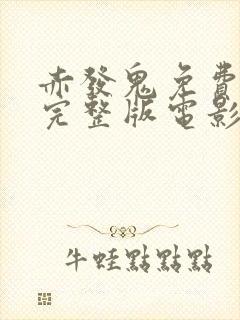 赤發鬼免費
完整版電影
牛蛙點點點